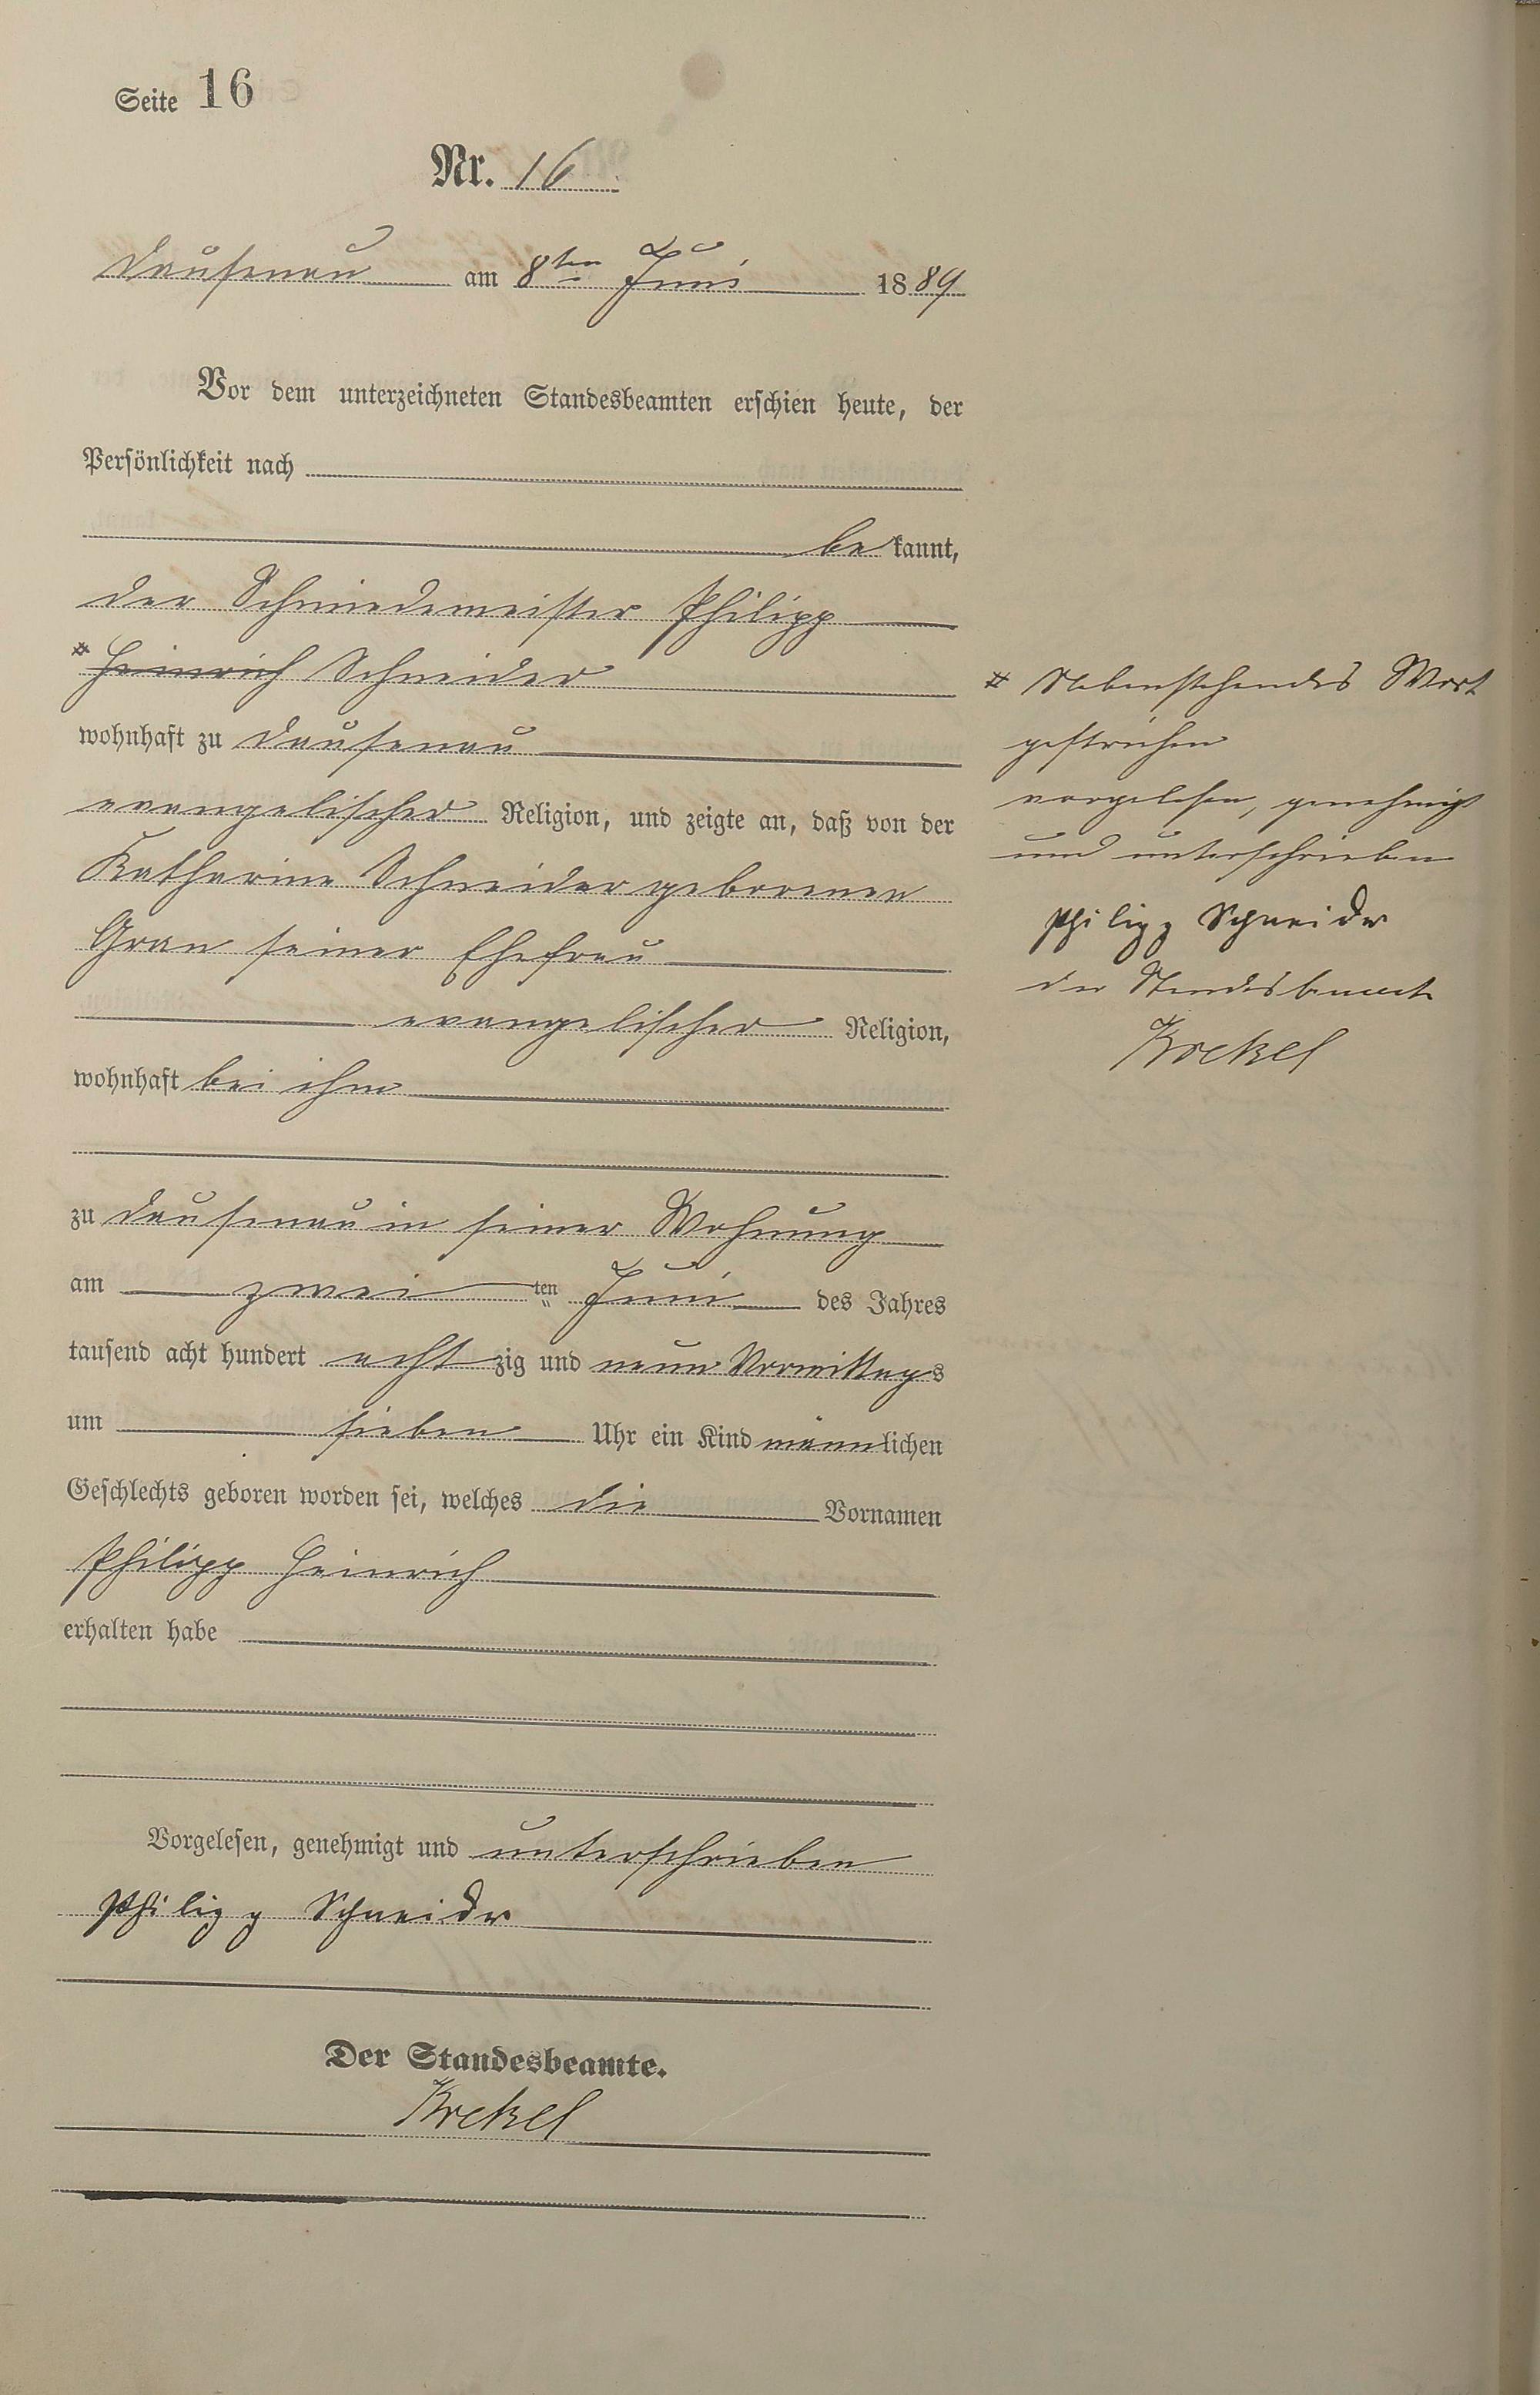 Seite 16
Nr. 16
Dausenau am 8ten Juni 1889
Vor dem unterzeichneten Standesbeamten erschien heute, der
Persönlichkeit nach
bekannt,
der Schmiedemeister Philipp
* Heinrich Schneider
wohnhaft zu Dausenau
evangelischer Religion, und zeigte an, daß von der
Katharine Schneider geborenen
seiner Ehefrau
evangelischer Religion,
wohnhaft bei ihm
zu Dausenau in seiner Wohnung
am zweiten Juni des Jahres
tausend acht hundert achtzig und neun Vormittags
um sieben Uhr ein Kind männlichen
Geschlechts geboren worden sei, welches die Vornamen
Philipp Heinrich
erhalten habe
Vorgelesen, genehmigt und unterschrieben
Philipp Schneider
Der Standesbeamte.
Krekel
* Nebenstehendes Wort
gestrichen
vorgelesen, genehmigt
und unterschrieben
Philipp Schneider
der Standesbeamte
Krekel